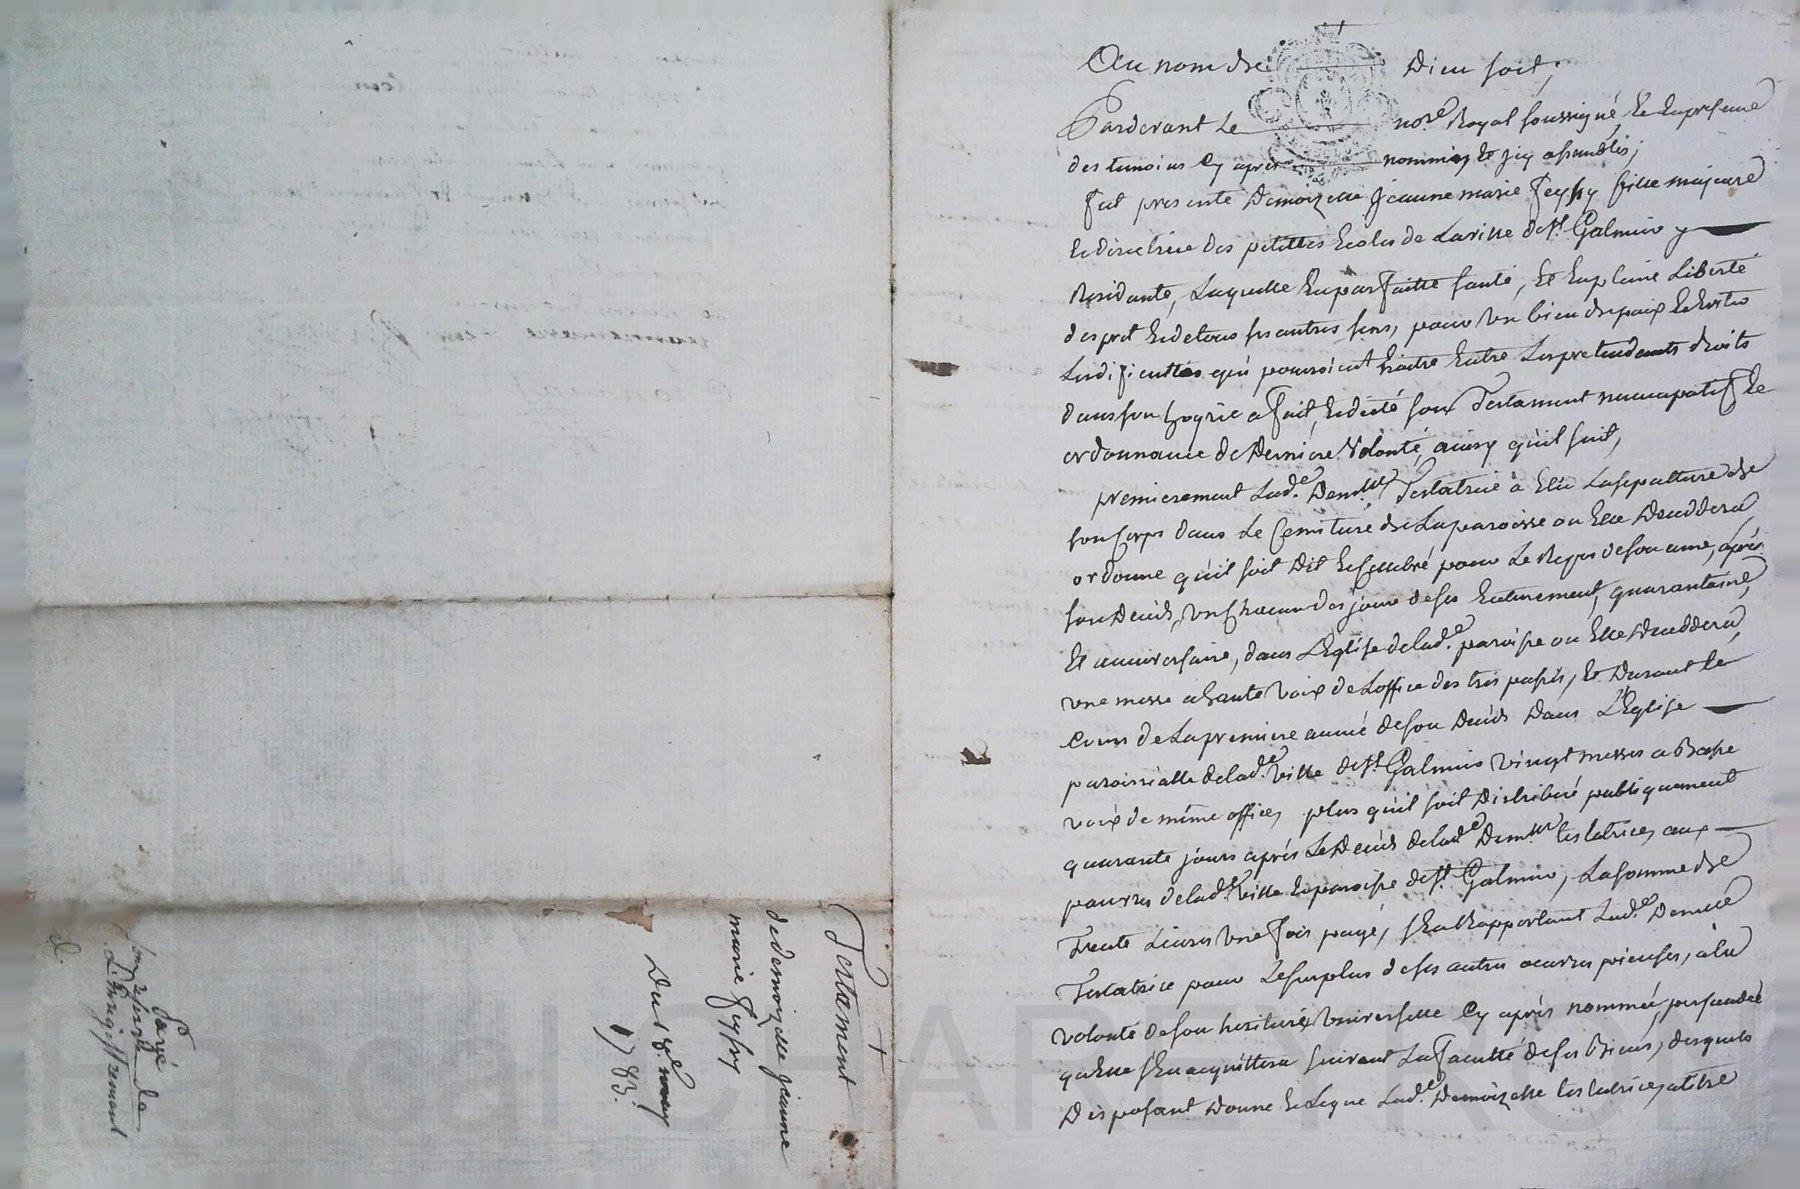 Au nom de Dieu soit,
Pardevant Le no.re Royal soussigné, Et En presence
des temoins Cy après nommés Et Icy assemblés;
fut presente Demoizelle Jeanne marie feyssy fille majeure
Et directrice des petittes Ecoles de La ville de St. Galmier y
Residante, Laquelle En parfaitte santé, Et En pleine Liberté
desprit Et de tous ses autres sens, pour un bien de paix Et Eviter
Les dificultés qui pourroient Naitre Entre Les pretendants droits
dans son hoyrie a fait, Et dicté son Testament nuncupatif Et
ordonnance de Derniere Volonté, ainsy quil suit,
premierement Lad.e Dem.lle Testatrice a Elu La sepulture de
son Corps dans Le Cemitiere de La paroisse ou Elle Deceddera,
ordonne quil soit dit Et Cellebré pour Le Repos de son ame, après
son Decès, un Chacun des jours de ses Enterrement, quarantaine,
Et anniversaire, dans L'Eglise de lad.e paroisse ou Elle Deceddera,
une messe a haute voix de Loffice des trepassés, Et Durant le
Cours de La premiere année de son Decès Dans L'Eglise
paroissialle de lad.e ville de St. Galmier vingt messes a Basse
voix de même office, plus quil soit Distribué publiquement
quarante jours après Le Decès de lad.e Dem.lle testatrice, aux
pauvres de lad.e ville Et paroisse de St. Galmier, La somme de
Trente Livres une fois payé, s'En Rapportant Lad.e Dem.lle
Testatrice pour Le surplus de ses autres oeuvres pieuses, à la
volonté de son heritiere universelle Cy après nommée, persuadée
qu'Elle s'En acquittera suivant La Faculté de ses Biens, desquels
Disposant Donne Et Legue Lad.e Demoizelle testatrice, a titre
Testament
de demoizelle jeanne
marie feyssy
Du 1783.
Payé
L'Enregistrement